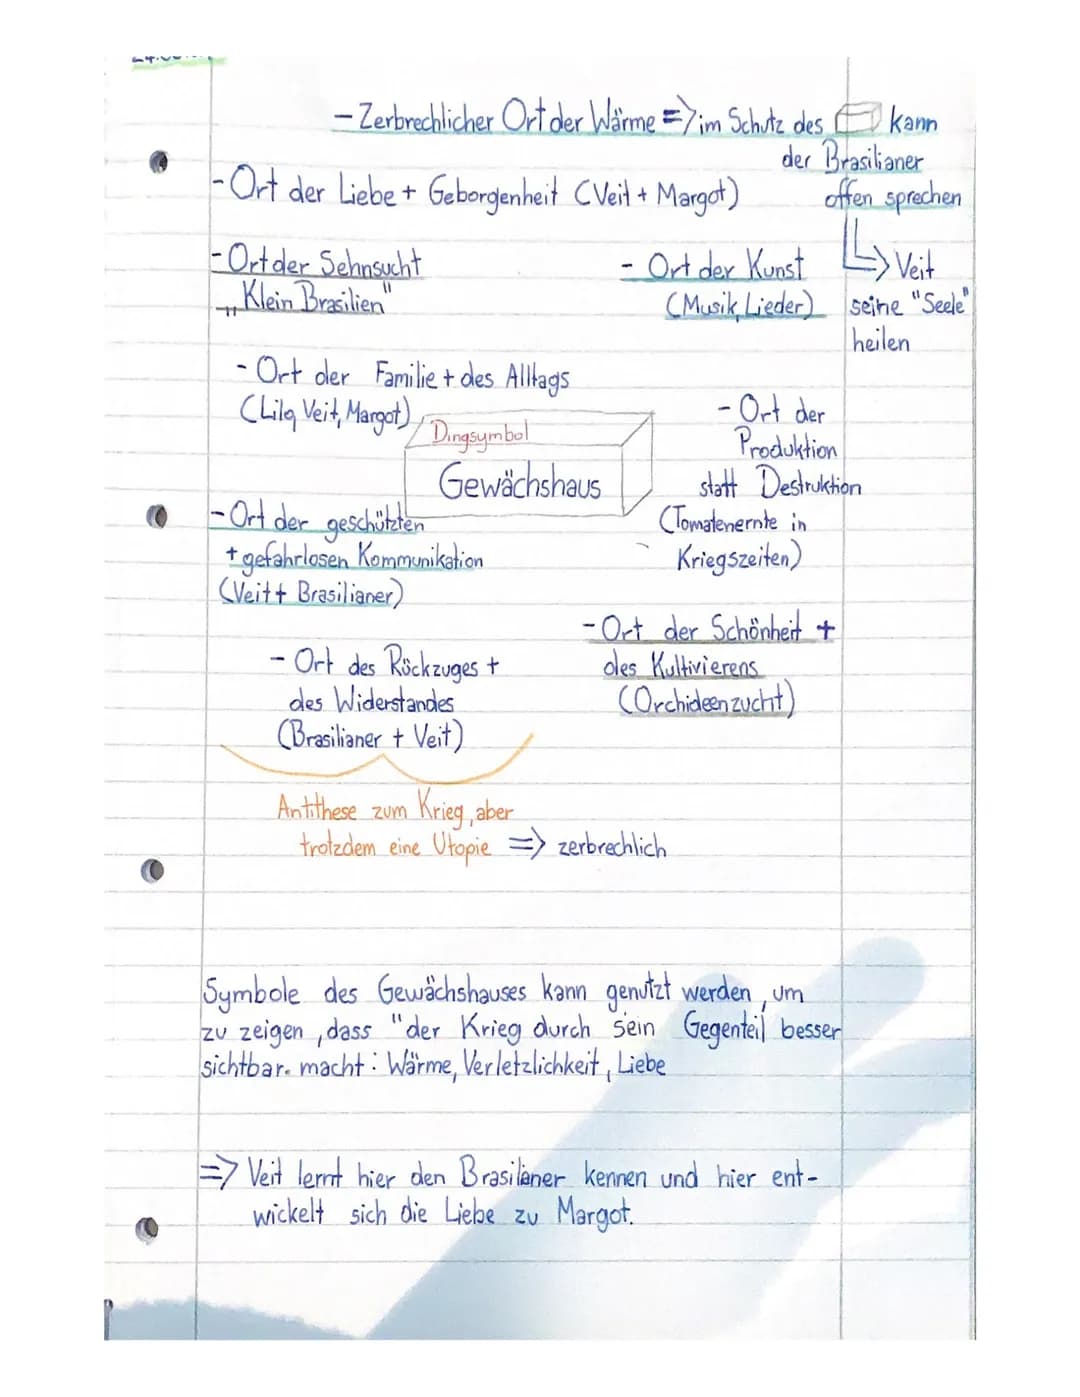 - Zerbrechlicher Ort der Wärme => im Schutz des kann
der Brasilianer
offen sprechen
- Ort der Liebe + Geborgenheit (Veit + Margot)
- Ort der Sehnsucht
„Klein Brasilien"
- Ort der Kunst
(Musik, Lieder)
=> Veit
seine "Seele"
heilen
- Ort der Familie + des Alltags
(Lila, Veit, Margot)
- Ort der
Produktion
statt Destruktion
(Tomatenernte in
Kriegszeiten)
Dingsymbol
Gewächshaus
- Ort der geschützten
+ gefahrlosen Kommunikation
(Veit + Brasilianer)
- Ort der Schönheit +
des Kultivierens
(Orchideenzucht)
- Ort des Rückzuges +
des Widerstandes
(Brasilianer + Veit)
Antithese zum Krieg, aber
trotzdem eine Utopie => zerbrechlich
Symbole des Gewächshauses kann genutzt werden, um
zu zeigen, dass "der Krieg durch sein Gegenteil besser
sichtbar. macht: Wärme, Verletzlichkeit, Liebe
=> Veit lernt hier den Brasilaner kennen und hier ent-
wickelt sich die Liebe zu Margot.